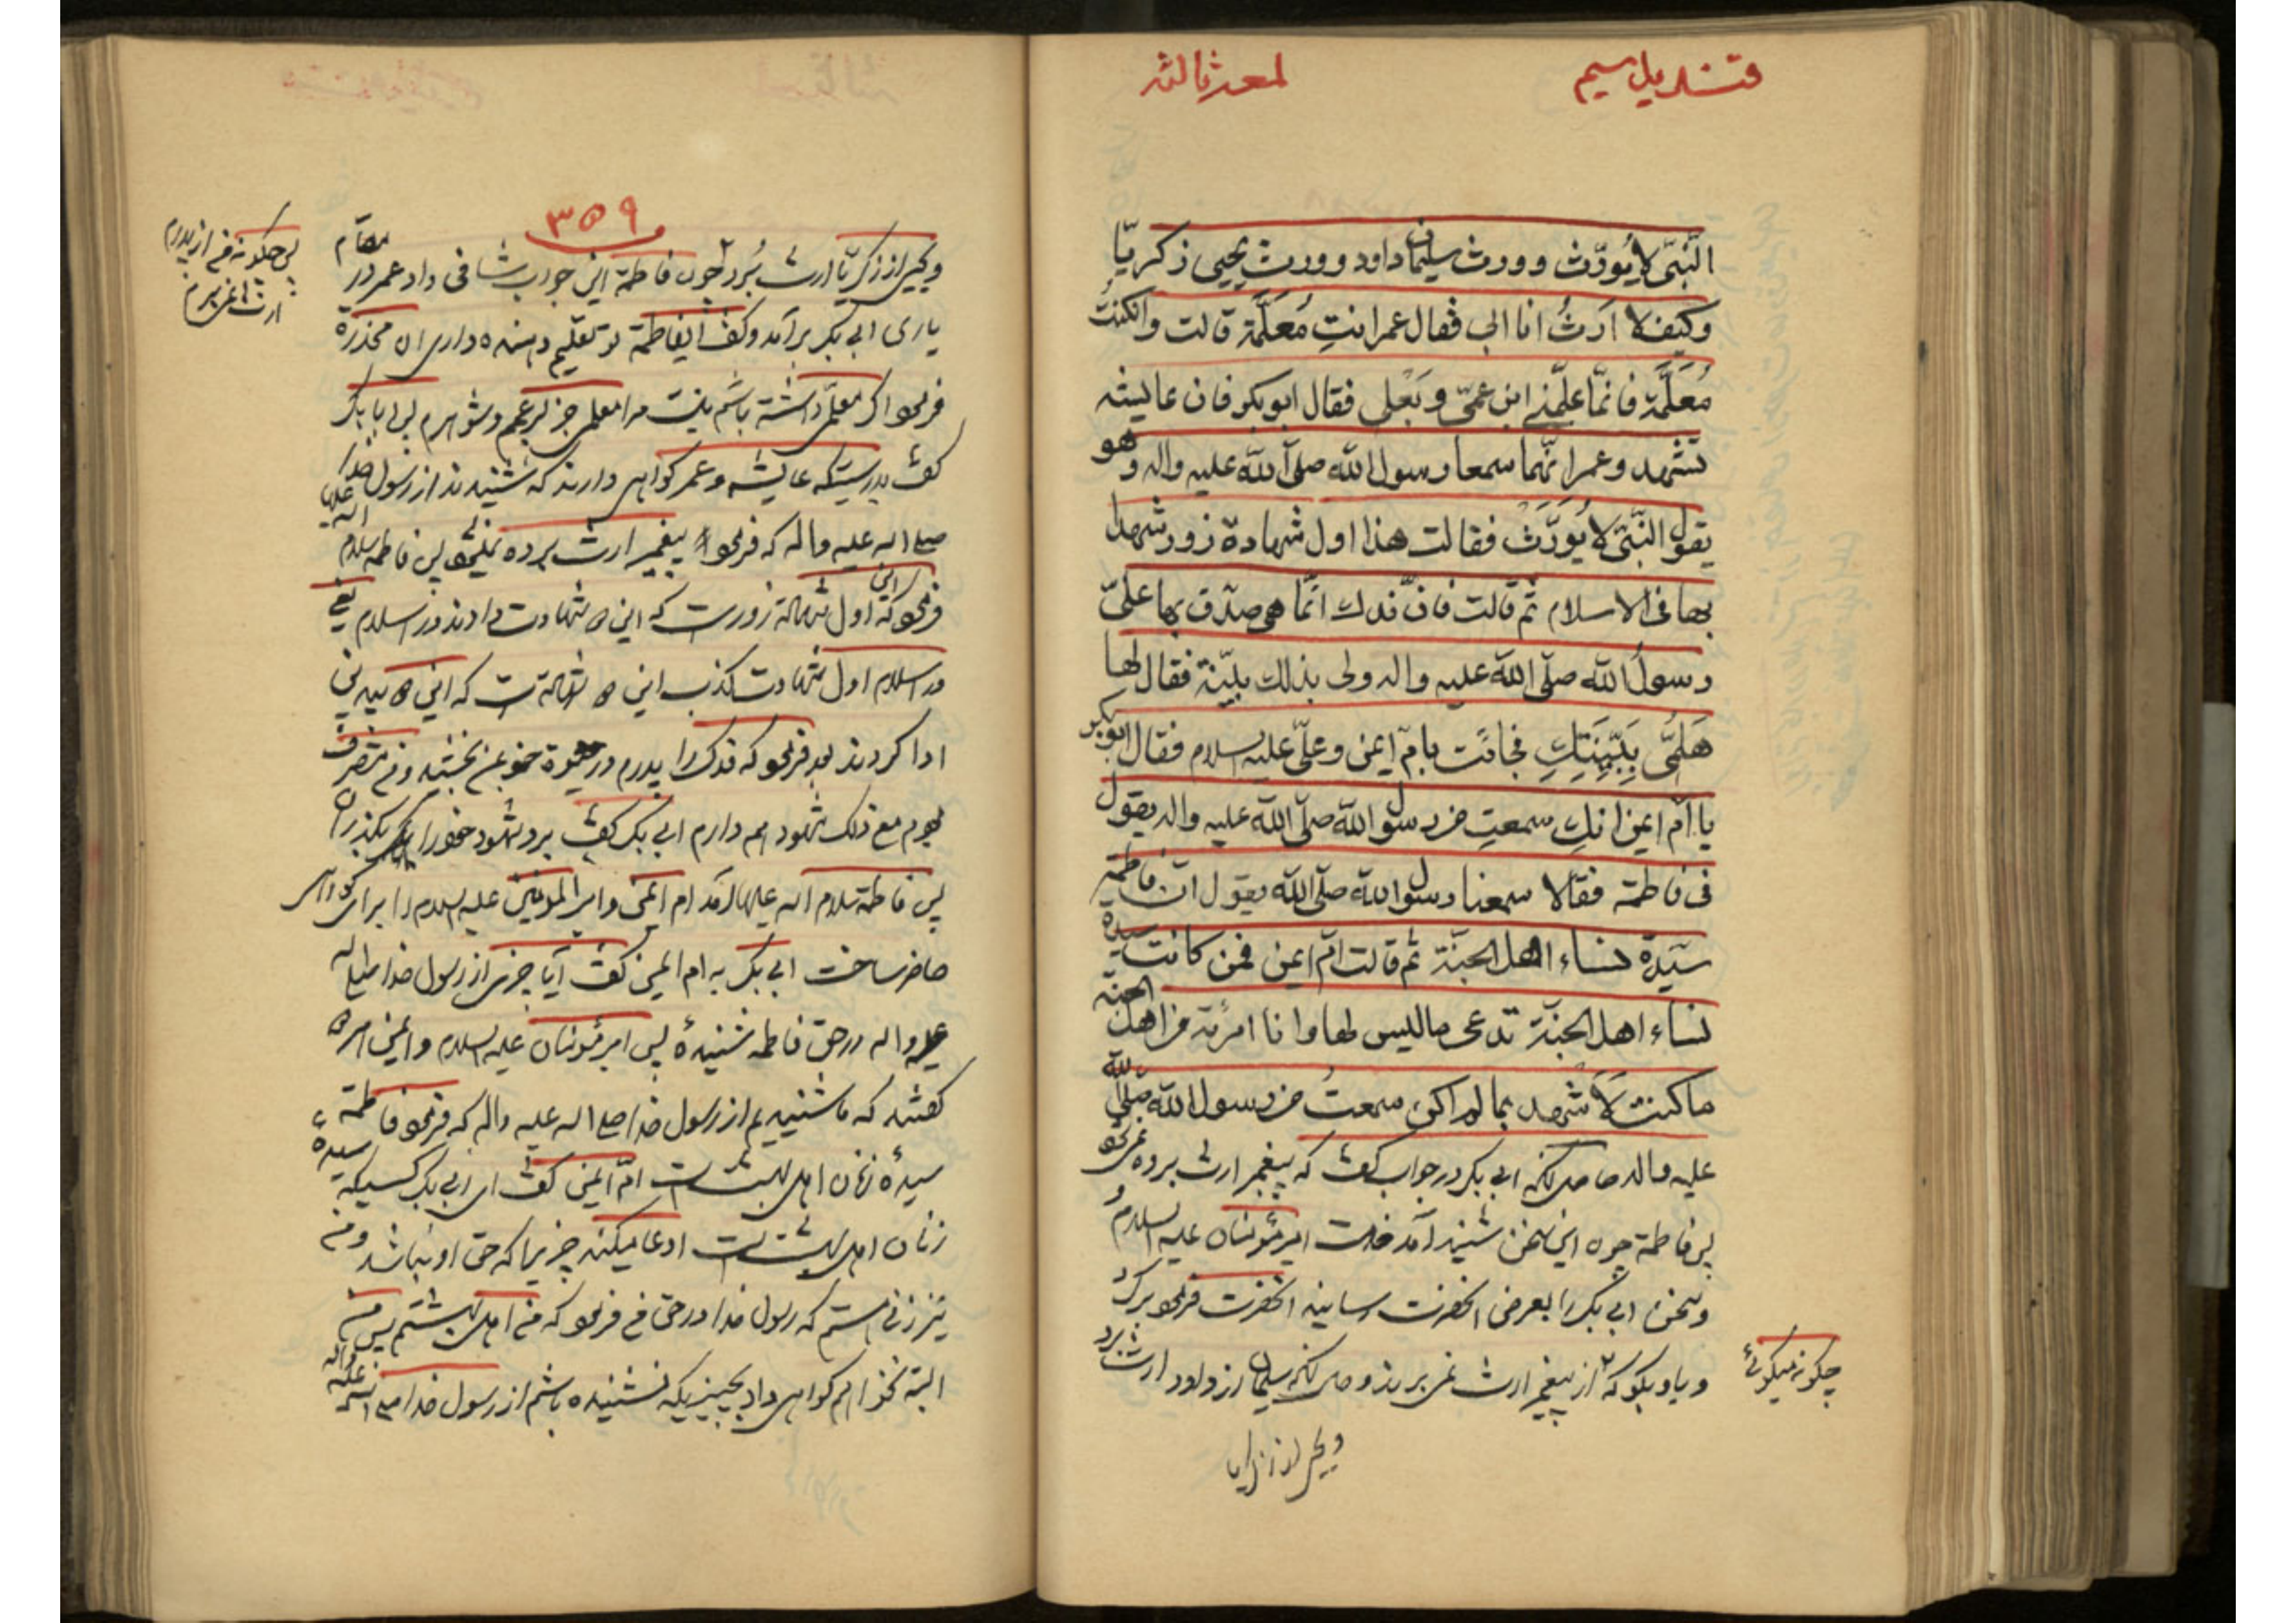 قندیل سیم
لمعه ثالثه
النّبیّ لا یُورّث و ورث سلیمان داود و ورث یحیی زکریّا
وکیف لا ارَثُ انا ابی فقال عمر انتِ مُعَلَّمة قالت وان کنتُ
مُعَلَّمَة فانمّا علّمنی ابن عمّی و بَعْلی فقال ابوبکر فان عایشه
تشهد و عمر انّهما سمعا رسول الله صلّی الله علیه واله وهو
یقول النّبیّ لا یُورَّث فقالت هذا اول شهادة زور شهدا
بها فی الاسلام ثم قالت فانّ فدك انّما هی صدّق بها علیّ
رسولُ الله صلّی الله علیه واله ولی بذلك بیّنة فقال لها
هَلُمّی بِبَیِّنَتِكِ فجائت بامّ ایمن وعلیّ علیه السلام فقال ابوبکر
یا امّ ایمن انكِ سمعتِ من رسول الله صلّی الله علیه واله یقول
فی فاطمة فقالا سمعنا رسول الله صلّی الله یقول انّ فاطمة
سیّدة نساء اهل الجنّة ثم قالت امّ ایمن فمن کانت سیدة
نساء اهل الجنّة تدعی مالیس لها وانا امرئة من اهل الجنة
ما کنت لاَشهد بما لم اکن سمعتُ من رسول الله صلّی الله
علیه واله حاصل انکه ابی بکر در جواب گفت که پیغمبر ارث برده نمیشود
پس فاطمة چون این سخن شنید آمد خدمت امیرمؤمنان علیه السلام
وسخن ابی بکر را بعرض انحضرت رسانید انحضرت فرمود برگرد
و باو بگو که از پیغمبر ارث نمی برند و حال انکه سلیمان از داود ارث برد
چگونه میگوئی
ویحیی از زکریا
۳۵۹
ویحیی از زکریّا ارث بُرد چون فاطمة این جواب شافی داد عمر در مقام
پس چگونه من از پدرم
ارث نمی برم
یاری ابی بکر برآمد وگفت ایفاطمة تو تعلیم دهنده داری ان مخدرة
فرمود اگر معلّمی داشته باشم نیست مرا معلمی جز پسر عمم و شوهرم پس ابا بکر
گفت بدرستیکه عایشه و عمر گواهی دارند که شنیدند از رسول خدا
صلی الله علیه واله که فرمود پیغمبر ارث برده نمیشود پس فاطمه سلام الله علیها
فرمود که این اول شهادة زورست که این ها شهادت دادند در اسلام یعنی
در اسلام اول شهادت کذب این ها شهادة است که این ها پیدینی
ادا کردند بعد فرمود که فدک را پدرم در حیوة خود بمن بخشید و من متصرف
بودم مع ذلک شهود هم دارم ابی بکر گفت برو شهود خود را بگذران
پس فاطمة سلام الله علیها آمد ام ایمن و امیرالمومنین علیه السلام را برای گواهی
حاضر ساخت ابی بکر به ام ایمن گفت آیا چیزی از رسول خدا صلی الله
علیه واله در حق فاطمه شنیدهٔ پس امیرمؤمنان علیه السلام و ایمن هر دو
گفتند که ما شنیدیم از رسول خدا صلی الله علیه واله که فرمود فاطمة
سیدهٔ زنان اهل بهشت است امّ ایمن گفت ای ابی بکر کسیکه سیدهٔ
زنان اهل بهشت است ادعا میکند چیزیرا که حق او نباشد و من
نیز زنی هستم که رسول خدا در حق من فرمود که من اهل بهشتم پس من
البته نخواهم گواهی داد بچیزیکه نشنیده باشم از رسول خدا صلی الله علیه واله